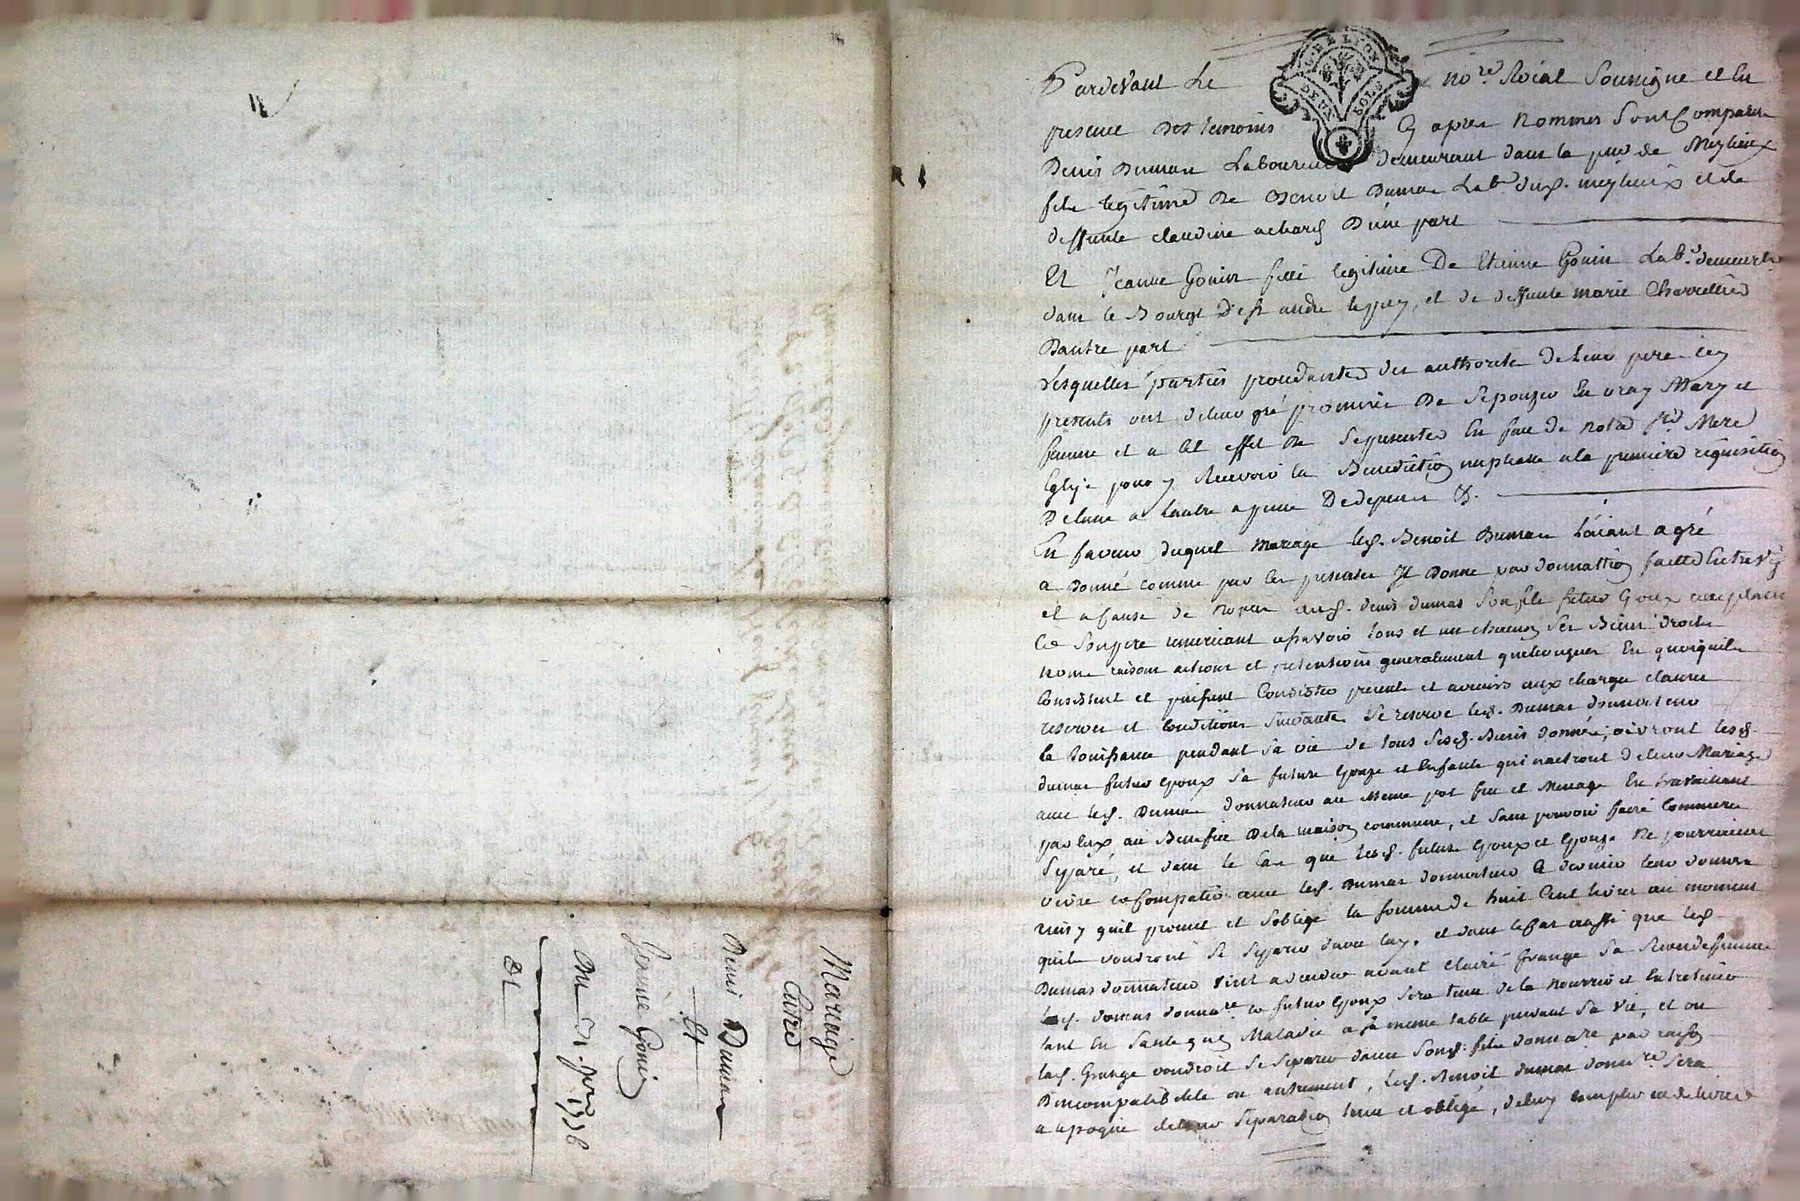 Mariage
Entre
Denis Dumas
Et
Jeanne Gonin
Du 21. 1778
Pardevant Le no.re Roial Soussigné et En
presence Des temoins Cy apres Nommes Sont Comparu
Denis Dumas Laboureur demeurant dans la de Meylieux
fils legitime De Benoit Dumas Lab.r meylieux et de
deffunte claudine achard D'une part
Et Jeanne Gonin fille legitime De Etienne Gonin Lab.r demeurt
dans le Bourg d'st andré lepuy, et de deffunte marie Charretier
Dautre part
Lesquelles parties procedantes des authorité de leur pere icy
presents ont de leur gré promis De Sepouzer En vray Mary et
femme et a Cet effet De Se presenter En face de notre Mere
Eglise pour y Recevoir la Benediction nuptialle a la premiere requisition
De lune a lautre a peine De depens &.
En faveur duquel Mariage led. Benoit Dumas Laiant agré
a Donné comme par les presentes Il Donne par donnation faitte Entre Vifs
et a Cause de Noces aud. denis dumas Son fils futur Epoux
Ce Sonpere a Scavoir tous et un chacun Ses Biens droits
noms raisons actions et pretentions generalement quelconques En quoi quils
Consistent et puissent Consister presents et avenirs aux charges clauses
reserves et Conditions Suivantes Se reserve led. Dumas donnateur
la Jouissance pendant Sa vie de tous Sesd. Biens donnés, vivront lesd.
dumas futur Epoux Sa future Epouze et Enfants qui naitront de leur Mariage
avec led. Dumas donnateur au Meme pot feu et Menage En travaillant
par Eux au Benefice De la maison commune, et Sans pouvoir faire Commerce
Separé, et dans le Cas que lesd. futurs Epoux et Epouze Ne pourroient
vivre avec led. Dumas donnateur Ce dernier leur donnera
ainsy quil promet et Soblige la Somme de huit Cent livres au moment
quils voudront Se Separer davec luy, et dans le Cas aussi que led.
Dumas donnateur vint a deceder avant Claire Grange Sa Seconde femme
led. dumas donna.re futur Epoux Sera tenu de la Nourrir et Entretenir
tant En Sante quen Maladie a Sa meme table pendant Sa vie, et ou
lad. Grange voudroit Se Separer davec Sond. fils donnare par raison
Dincompatibilité ou autrement, led. Benoit dumas donn.re Sera
a lepoque de leur Separation tenu et obligé, de luy